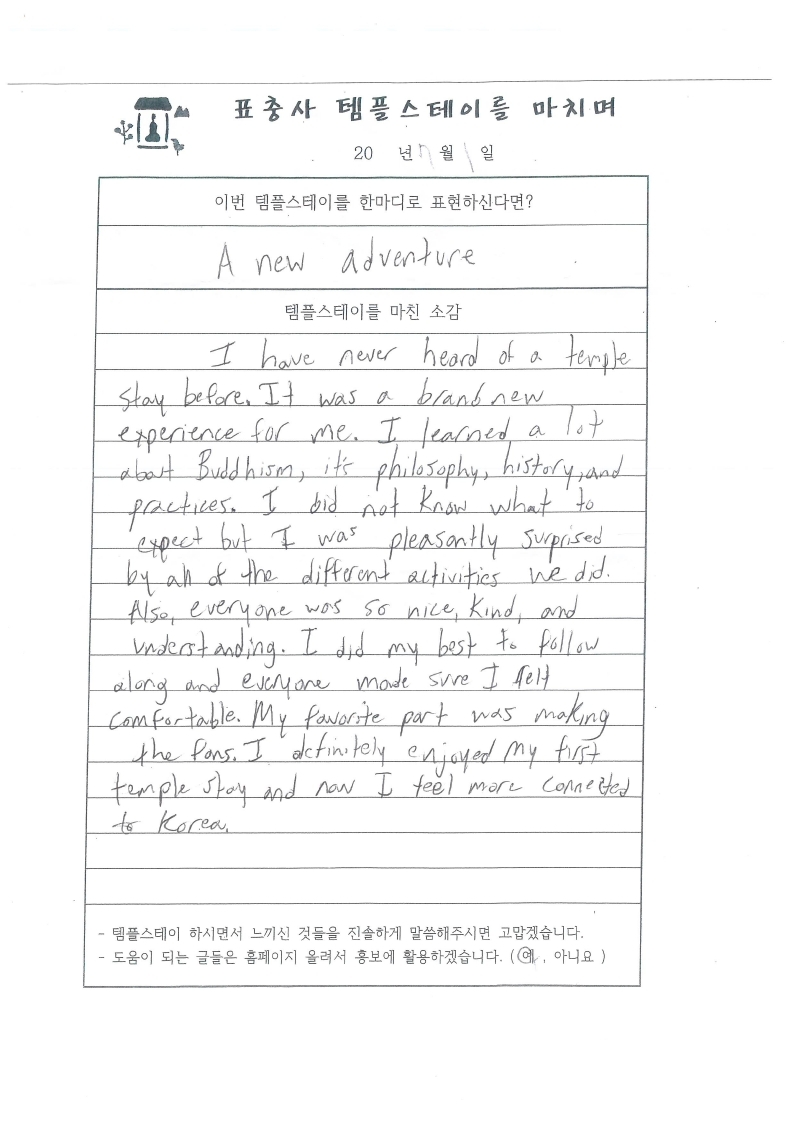 표충사 템플스테이를 마치며
20 년 7월 1일
이번 템플스테이를 한마디로 표현하신다면?
A new adventure
템플스테이를 마친 소감
I have never heard of a temple
stay before. It was a brand new
experience for me. I learned a lot
about Buddhism, it's philosophy, history, and
practices. I did not know what to
expect but I was pleasantly surprised
by all of the different activities we did.
Also, everyone was so nice, kind, and
understanding. I did my best to follow
along and everyone made sure I felt
comfortable. My favorite part was making
the fans. I definitely enjoyed my first
temple stay and now I feel more connected
to Korea.
- 템플스테이 하시면서 느끼신 것들을 진솔하게 말씀해주시면 고맙겠습니다.
- 도움이 되는 글들은 홈페이지 올려서 홍보에 활용하겠습니다. (예, 아니요 )